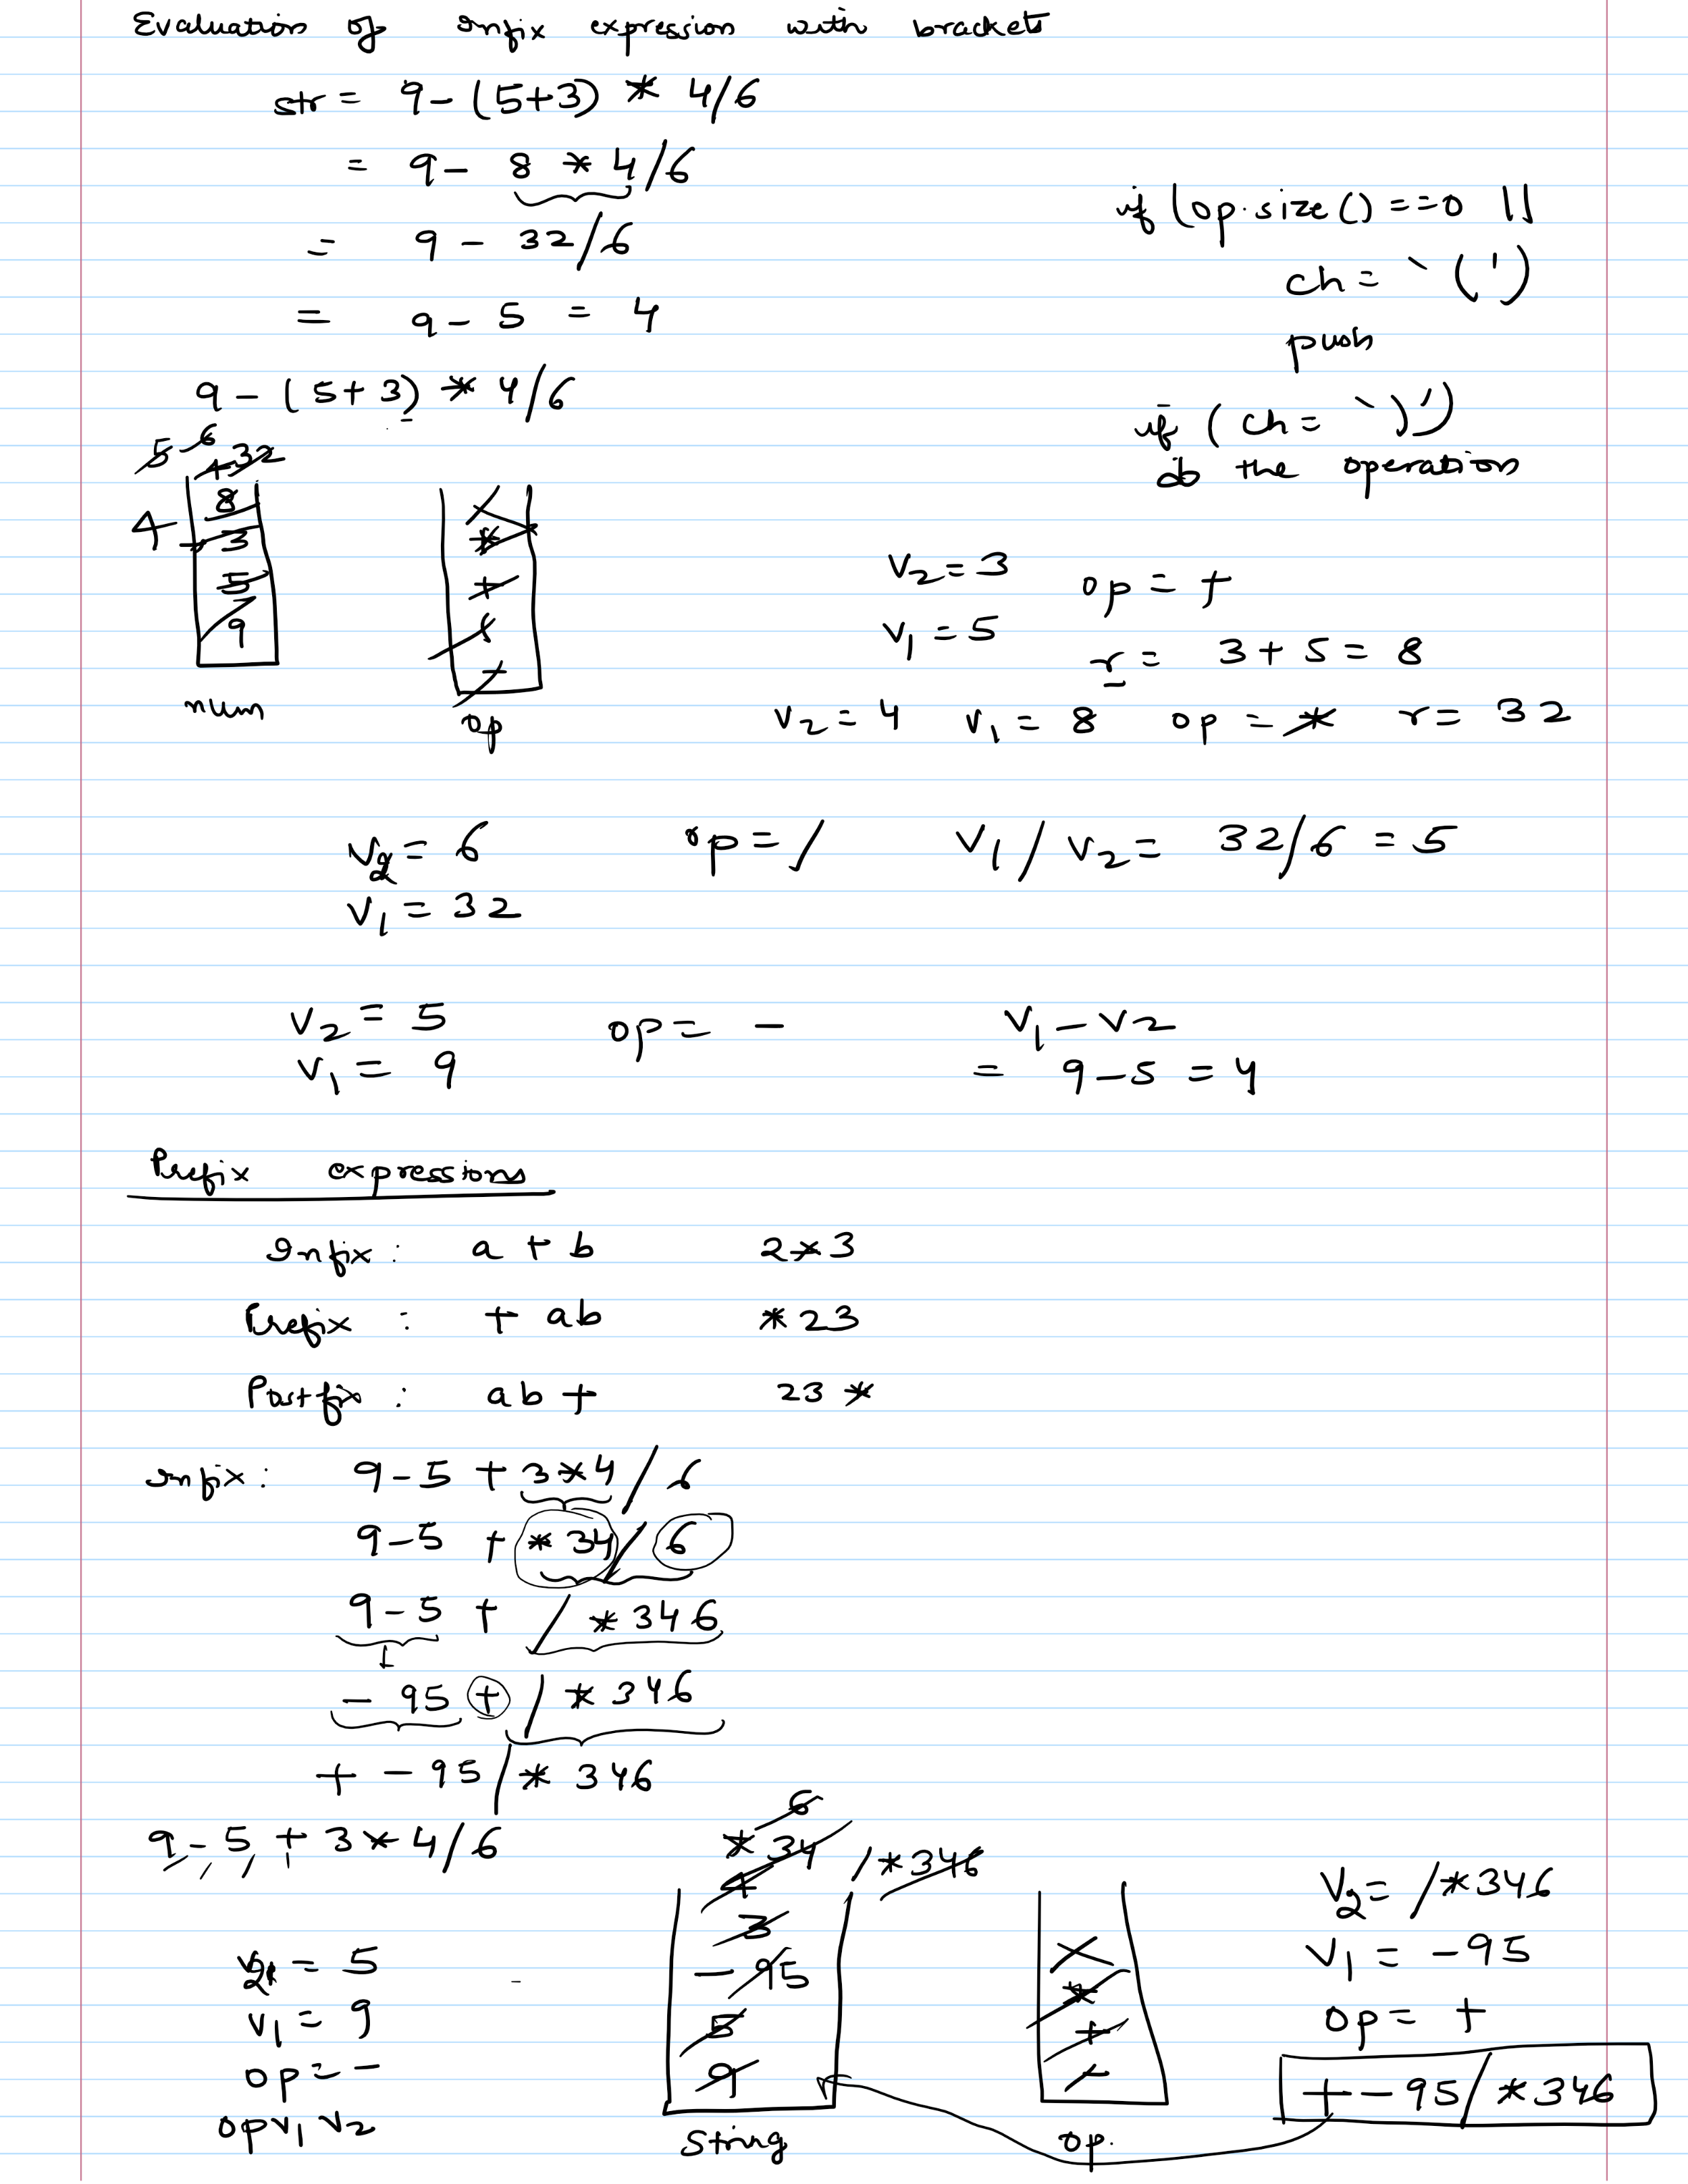 Evaluation of Infix expression with brackets
str = 9 - (5+3) * 4/6
= 9 - 8 * 4/6
= 9 - 32/6
= 9 - 5 = 4
if (op.size() ==0 ||
ch = `(')
push
if ( ch = `)')
do the operation
9 - (5+3) * 4/6
5 6
4 32
8
4 3
5
9
num
*
+
(
-
op
V2 = 3
V1 = 5
op = +
r = 3 + 5 = 8
V2 = 4 V1 = 8 op = * r = 32
V2 = 6 op = / V1 / V2 = 32/6 = 5
V1 = 32
V2 = 5 op = - V1 - V2
V1 = 9 = 9-5 = 4
Prefix expressions
Infix : a + b 2*3
Prefix : + ab *23
Postfix : ab + 23 *
Infix : 9-5 + 3*4 / 6
9-5 + *34 / 6
9-5 + / *346
- 95 + / *346
+ - 95 / * 346
9 - 5 + 3 * 4/6
V2 = 5
V1 = 9
op = -
op V1 V2
6
*34 / *346
4
3
- 95
5
9
String
*
+
-
op.
V2 = / *346
V1 = -95
op = +
+ - 95 / *346